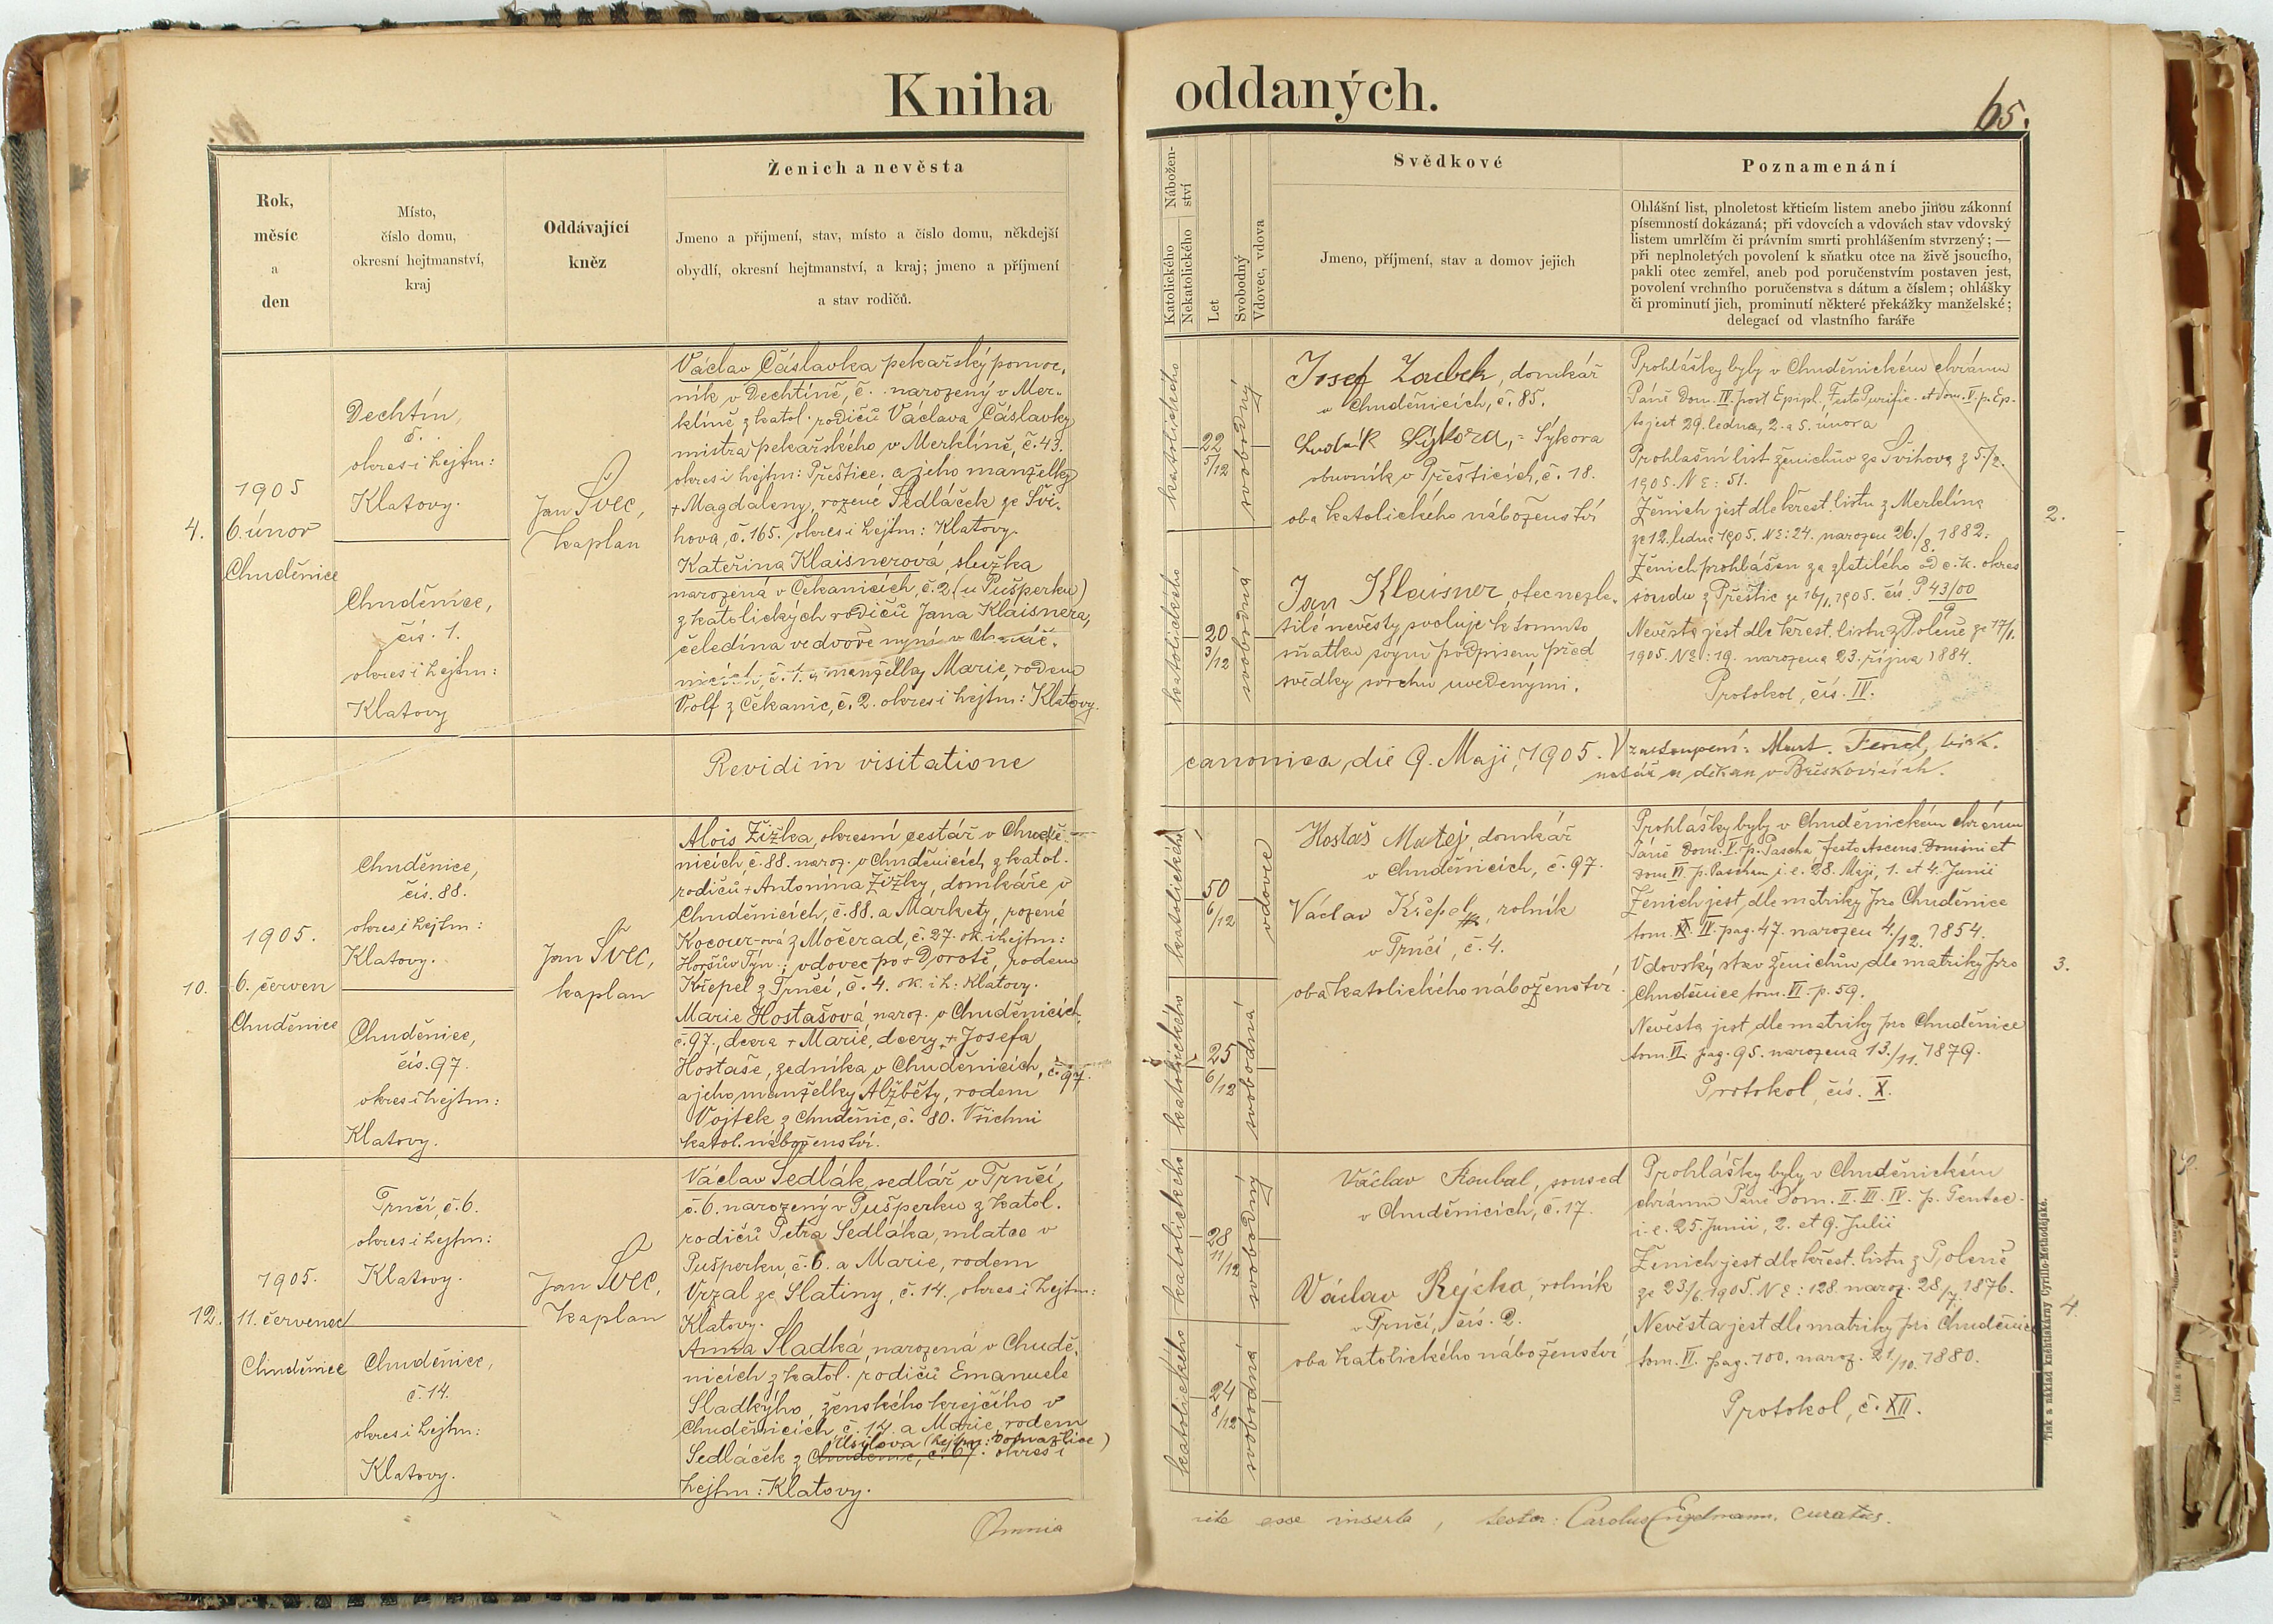 Kniha oddaných.
65.
Rok,
měsíc
a
den
Místo,
číslo domu,
okresní hejtmanství,
kraj
Oddávající
kněz
Ženich a nevěsta
Jmeno a příjmení, stav, místo a číslo domu, někdejší
obydlí, okresní hejtmanství, a kraj; jmeno a příjmení
a stav rodičů.
Nábožen-
ství
Katolického
Nekatolického
Let
Svobodný
Vdovec, vdova
Svědkové
Jmeno, příjmení, stav a domov jejich
Poznamenání
Ohlášní list, plnoletost křticím listem anebo jinou zákonní
písemností dokázaná; při vdovcích a vdovách stav vdovský
listem umrlčím či právním smrti prohlášením stvrzený; —
při neplnoletých povolení k sňatku otce na živě jsoucího,
pakli otec zemřel, aneb pod poručenstvím postaven jest,
povolení vrchního poručenstva s dátum a číslem; ohlášky
či prominutí jich, prominutí některé překážky manželské;
delegací od vlastního faráře
4.
1905
6. únor
Chuděnice
Dechtín,
č. ..
okres i hejtm:
Klatovy.
Chuděnice,
čís. 1.
okres i hejtm:
Klatovy
Jan Švec,
kaplan
Václav Čáslavka pekařský pomoc.
ník v Dechtíně, č. .. narozený v Mer-
klíně z katol. rodičů Václava Čáslavky
mistra pekařského v Merklíně, č. 43.
okres i hejtm: Přeštice. a jeho manželky
+ Magdaleny, rozené Sedláček ze Švi-
hova, č. 165. okres i hejtm: Klatovy.
Kateřina Klaisnerová, služka
narozená v Čekanicích, č. 2 (u Pušperku)
z katolických rodičů Jana Klaisnera,
čeledína ve dvoře nyní v Chudě-
nicích, č. 1. a manželky Marie, rodem
Volf z Čekanic, č. 2. okres i hejtm: Klatovy.
katolického
22
5/12
svobodný
katolického
20
3/12
svobodná
Josef Zoubek, domkář
v Chuděnicích, č. 85.
Sýkora, = Sýkora
obuvník v Přešticích, č. 18.
oba katolického náboženství
Jan Klaisner, otec nezle-
tilé nevěsty svoluje k tomuto
sňatku svým podpisem před
svědky svrchu uvedenými.
Prohlášky byly v Chuděnickém chrámu
Páně Dom. IV. post Epiph. Festo Purific. et Dom. V. p. Ep.
to jest 29. ledna, 2. a 5. února
Prohlašní list ženichův ze Švihova z 5./2.
1905. NE: 51.
Ženich jest dle křest. listu z Merklína
ze 12. ledna 1905. NE: 24. narozen 26./8. 1882.
Ženich prohlášen za zletilého od c. k. okres
soudu z Přeštic ze 16/1. 1905. čís. P 43/00
9
Nevěsta jest dle křest. listu z Poleně ze 17/1.
1905. NE: 19. narozena 23. října 1884.
Protokol, čís. IV.
2.
Revidi in visitatione
canonica, die 9. Maji, 1905. V zastoupení: Mart. Fencl, bisk.
notář a děkan v Běškovicích.
10.
1905.
6. červen
Chuděnice
Chuděnice,
čís. 88.
okres i hejtm:
Klatovy.
Chuděnice,
čís. 97.
okres i hejtm:
Klatovy.
Jan Švec,
kaplan
Alois Žižka, okresní cestář v Chudě-
nicích, č. 88. naroz. v Chuděnicích z katol.
rodičů + Antonína Žižky, domkáře v
Chuděnicích, č. 88. a Markety, rozené
Kocour-ová z Močerad, č. 27. ok. i hejtm:
Horšův Týn.; vdovec po + Dorotě, rodem
Křepel z Trnčí, č. 4. ok. i h: Klatovy.
Marie Hostašová, naroz. v Chuděnicích,
č. 97., dcera + Marie, dcery + Josefa
Hostaše, zedníka v Chuděnicích, č. 97.
a jeho manželky Alžběty, rodem
Vojtek z Chuděnic, č. 80. Všichni
katol. náboženství.
katolického
50
6/12
vdovec
katolického
25
6/12
svobodná
Hostaš Matěj, domkář
v Chuděnicích, č. 97.
Václav Křepel, rolník
v Trnčí, č. 4.
oba katolického náboženství
Prohlášky byly v Chuděnickém chrámu
Páně Dom. V. p. Pascha festo Ascens. Domini et
Dom VI. p. Pascham i. e. 28. Maji, 1. et 4. Junii
Ženich jest, dle matriky pro Chuděnice
tom. II. pag. 47. narozen 4./12. 1854.
Vdovský stav ženichův dle matriky pro
Chuděnice tom. VI. p. 59.
Nevěsta jest dle matriky pro Chuděnice
tom. VI. pag. 95. narozena 13./11. 1879.
Protokol, čís. X.
3.
12.
1905.
11. červenec
Chuděnice
Trnčí, č. 6.
okres i hejtm:
Klatovy.
Chuděnice,
č. 14.
okres i hejtm:
Klatovy.
Jan Švec,
kaplan
Václav Sedlák, sedlář v Trnčí,
č. 6. narozený v Pušperku z katol.
rodičů Petra Sedláka, mlatce v
Pušperku, č. 6. a Marie, rodem
Vrzal ze Slatiny, č. 14. okres i hejtm:
Klatovy.
Anna Sladká, narozená v Chudě-
nicích z katol. rodičů Emanuele
Sladkýho, ženského krejčího v
Chuděnicích, č. 14. a Marie, rodem
Úsilova (hejtm: Domažlice)
Sedláček z Chuděnic, č. 67. okres i
hejtm: Klatovy.
katolického
28
11/12
svobodný
katolického
24
8/12
svobodná
Václav Koubal, soused
v Chuděnicích, č. 17.
Václav Rejcha, rolník
v Trnčí, čís. 2.
oba katolického náboženství
Prohlášky byly v Chuděnickém
chrámu Páně Dom. II. III. IV. p. Pentec.
i. e. 25. Junii, 2. et 9. Julii
Ženich jest dle křest. listu z Poleně
ze 23/6. 1905. NE: 128. naroz. 28/7. 1876.
Nevěsta jest dle matriky pro Chuděnice
tom. VI. pag. 100. naroz. 21/10. 1880.
Protokol, č. XII.
4.
Omnia rite esse inserta, testor: Carolus Engelmann, curatus.
Tisk a náklad knihtiskárny Cyrillo-Methodějské.